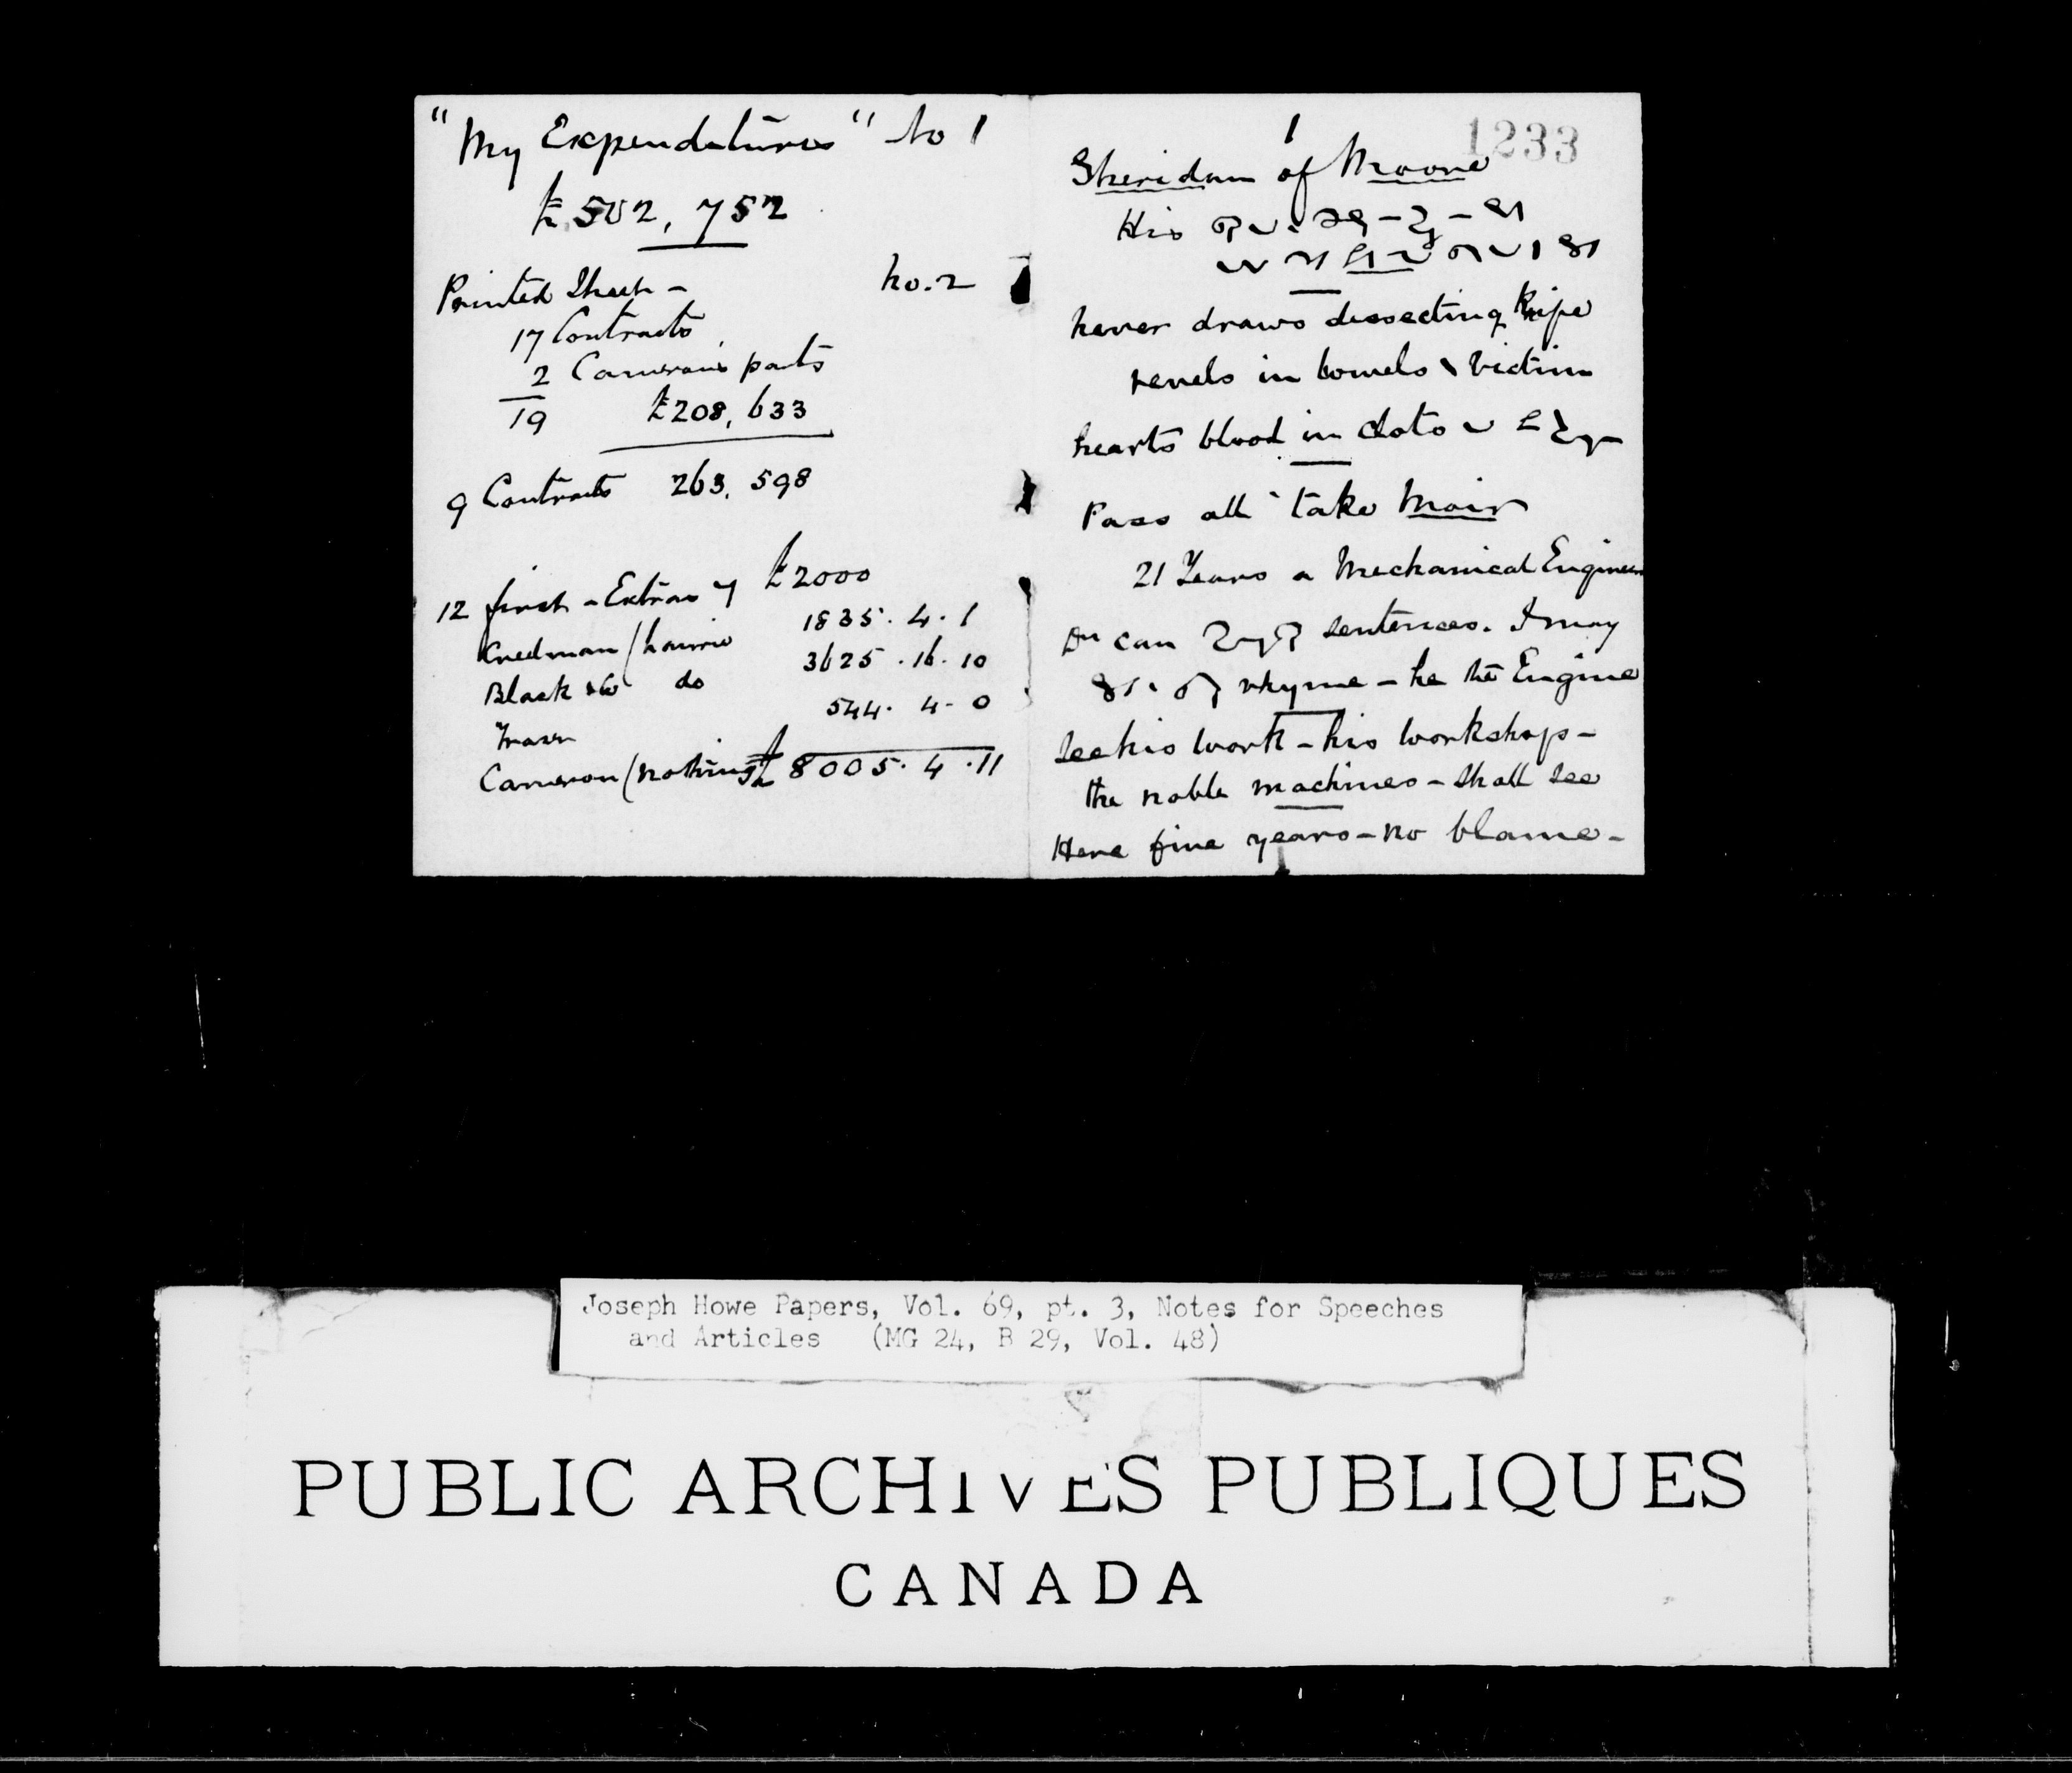 "My Expenditures" No 1
£502,752
Printed Sheet - No. 2
17 Contracts
2 Cameron's parts
19 £208,633
9 Contracts 263,598
12 first - Extras 7 £2000
1835. 4. 1
Black &Co do 3625. 16. 10
Fraser 544. 4. 0
Cameron (nothing) £8005. 4. 11
1
1233
Sheridan of Moore
His
never draws dissecting knife
revels in bowels victim
hearts blood in clots
Pass all take Moir
21 Years a Mechanical Engineer
Dr can sentences. I may
rhyme - he the Engine
See his work - his workshops -
the noble machines - shall see
Here five years - no blame -
Joseph Howe Papers, Vol. 69, pt. 3, Notes for Speeches
and Articles (MG 24, B 29, Vol. 48)
PUBLIC ARCHIVES PUBLIQUES
CANADA